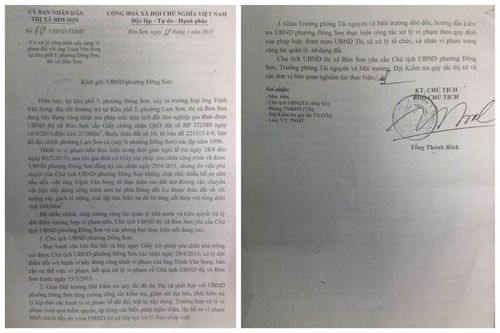 ỦY BAN NHÂN DÂN
THỊ XÃ BỈM SƠN
CỘNG HOÀ XÃ HỘI CHỦ NGHĨA VIỆT NAM
Độc lập - Tự do - Hạnh phúc
/UBND-TNMT
Bỉm Sơn, ngày tháng 5 năm 2015
V/v xử lý công trình xây dựng vi
phạm đối với ông Trịnh Văn Song
tại khu phố 5, phường Đông Sơn,
thị xã Bỉm Sơn
Kính gửi: UBND phường Đông Sơn.
Hiện nay, tại khu phố 5, phường Đông Sơn, xảy ra trường hợp ông Trịnh
Văn Song, địa chỉ thường trú tại Khu phố 2, phường Lam Sơn, thị xã Bỉm Sơn
đang xây dựng công trình trái phép trên diện tích đất lâm nghiệp gia đình được
UBND thị xã Bỉm Sơn cấp Giấy chứng nhận QSD đất số BP 722580 ngày
16/4/2014, diện tích 27.000m², thuộc thửa đất số 10, tờ bản đồ 221515-1-9, bản
đồ địa chính phường Lam Sơn cũ (nay là phường Đông Sơn) xác lập năm 1996.
Hành vi vi phạm trên thực hiện trong thời gian nghỉ lễ (từ ngày 28/4 đến
ngày 03/5/2015), sau khi gia đình có Giấy xin phép sửa chữa công trình và được
UBND phường Đông Sơn đồng ý xác nhận ngày 29/4/2015, nhưng do việc phê
duyệt của Chủ tịch UBND phường Đông Sơn không chặt chẽ, thiếu hồ sơ nên
dẫn đến việc ông Trịnh Văn Song đã thực hiện san đất mở đường vận chuyển
vật liệu xây dựng công trình mới tại phía Đông đồi Lu thuộc thửa đất số 10,
tường xây gạch xỉ măng, mái lợp tôn, hiên hè đổ bê tông xi măng với tổng diện
tích 160,08m².
Để chấn chỉnh, tăng cường công tác quản lý nhà nước và kiên quyết xử lý
dứt điểm trường hợp vi phạm trên, Chủ tịch UBND thị xã Bỉm Sơn yêu cầu Chủ
tịch UBND phường Đông Sơn và các phòng ban thực hiện nội dung sau:
1. Chủ tịch UBND phường Đông Sơn:
- Ban hành văn bản thu hồi và hủy ngay Giấy xin phép sửa chữa nhà trông
coi được Chủ tịch UBND phường Đông Sơn xác nhận ngày 29/4/2015; xử lý dứt
điểm đối với hành vi xây dựng công trình vi phạm của ông Trịnh Văn Song, báo
cáo cụ thể về việc vi phạm, kết quả xử lý vi phạm về Chủ tịch UBND thị xã Bỉm
Sơn trước ngày 15/5/2015.
2. Giao Đội trưởng Đội Kiểm tra quy tắc đô thị Thị xã phối hợp với UBND
phường Đông Sơn tăng cường công tác kiểm tra, giám sát địa bàn, phát hiện xử
lý kịp thời các hành vi vi phạm về đất đai, trật tự xây dựng. Trường hợp xử lý vi
phạm vượt quá thẩm quyền, áp dụng các biện pháp ngăn chặn, lập hồ sơ vi phạm
hành chính đầy đủ trình UBND thị xã tiếp tục xử lý theo pháp luật.
3. Giao Trưởng phòng Tài nguyên và Môi trường đôn đốc, hướng dẫn kiểm
tra UBND phường Đông Sơn thực hiện công tác xử lý vi phạm theo quy định
của pháp luật, tham mưu UBND Thị xã xử lý tổ chức, cá nhân vi phạm trong
công tác quản lý, sử dụng đất.
Chủ tịch UBND thị xã Bỉm Sơn yêu cầu Chủ tịch UBND phường Đông
Sơn, Trưởng phòng Tài nguyên và Môi trường, Đội Kiểm tra quy tắc thị xã và
các đơn vị liên quan nghiêm túc thực hiện./.
Nơi nhận:
- Như trên;
- Chủ tịch UBNDTX (báo cáo);
- Phòng TN&MT (Th);
- Đội Kiểm tra quy tắc đô thị TX (Th);
- Lưu: VT, TNMT.
KT. CHỦ TỊCH
PHÓ CHỦ TỊCH
Tống Thanh Bình